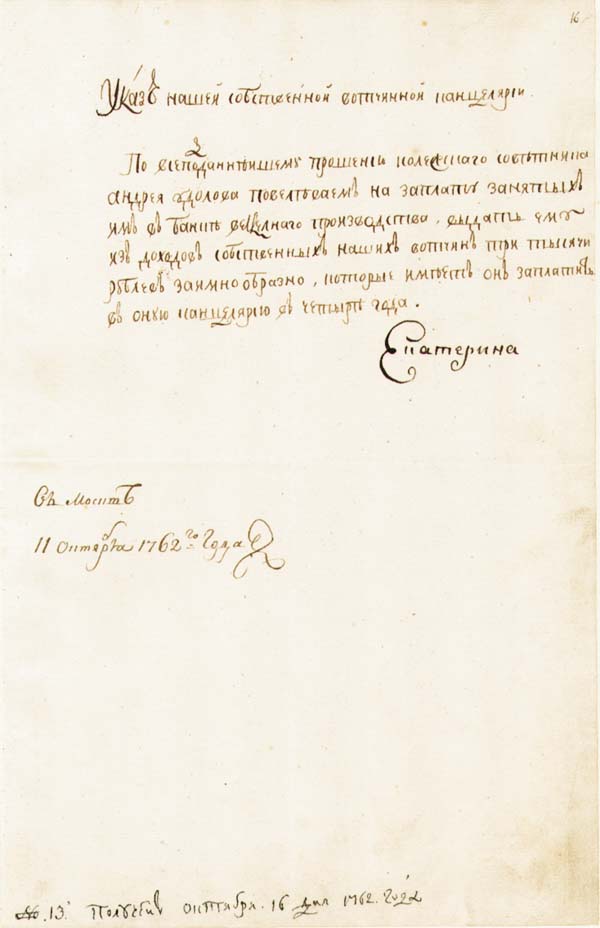 16
Указъ нашей собственной вотчинной канцелярiи.
По всеподаннѣйшему прошенiю колежскаго совѣтника
андрея удолова повелѣваемъ на заплату занятыхъ
имъ въ банкѣ вексѣлнаго произвоdства, выдать ему
изъ доходовъ собственныхъ нашихъ вотчинъ три тысячи
рублевъ заимнообразно, которые имѣетъ онъ заплатить
въ оную канцелярiю въ четыре года.
Екатерина
Въ Москвѣ
11 октября 1762го Года
№. 13. Полученъ октября. 16 дня 1762. Года